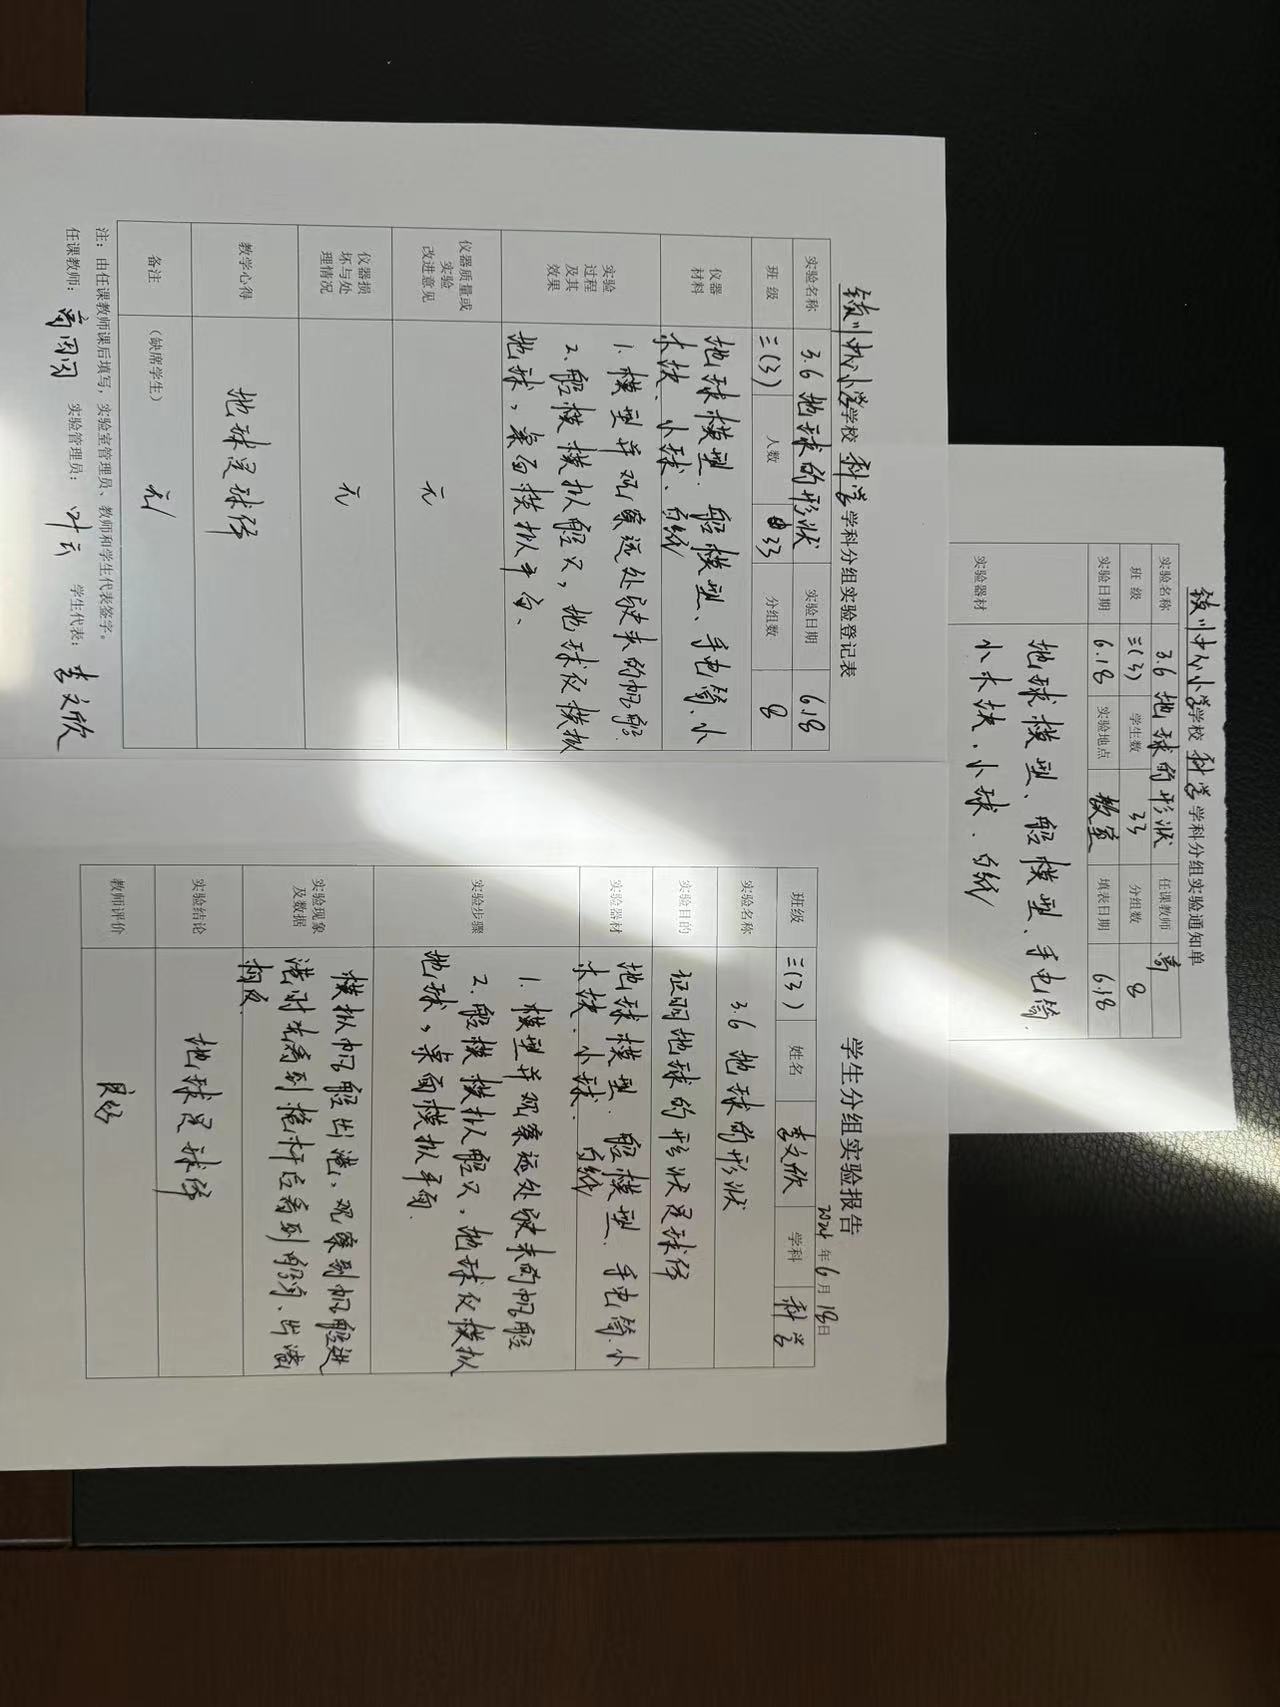 镇川中心小学学校 科学 学科分组实验通知单
实验名称 3.6 地球的形状 任课教师
班 级 三(3) 学生数 33 分组数 8
实验日期 6.18 实验地点 教室 填表日期 6.18
实验器材 地球模型、船模型、手电筒、
小木块、小球、白纸
镇川中心小学学校 科学 学科分组实验登记表
实验名称 3.6 地球的形状 实验日期 6.18
班 级 三(3) 人数 33 分组数 8
仪器
材料
地球模型、船模型、手电筒、小
木块、小球、白纸
实验
过程
及其
效果
1. 模型并观察远处驶来的帆船
2. 船模模拟船只,地球仪模拟
地球,桌面模拟平面、
仪器质量或
实验
改进意见
无
仪器损
坏与处
理情况
无
教学心得 地球是球体
备注 (缺席学生) 无
注:由任课教师课后填写,实验室管理员、教师和学生代表签字。
任课教师: 实验管理员:叶云 学生代表:李文欣
学生分组实验报告
2024年6月18日
班级 三(3) 姓名 李文欣 学科 科学
实验名称 3.6 地球的形状
实验目的 证明地球的形状是球体
实验器材 地球模型、船模型、手电筒、小
木块、小球、白纸
实验步骤 1. 模型并观察远处驶来的帆船
2. 船模模拟船只,地球仪模拟
地球,桌面模拟平面.
实验现象
及数据
模拟帆船出港,观察到帆船进
港时先看到桅杆后看到船身、出港
相反.
实验结论 地球是球体
教师评价 良好